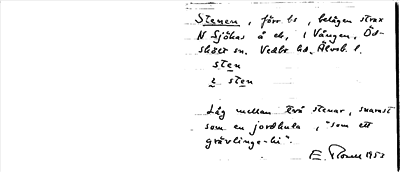 Stenen, förr ls, belägen strax
N Sjökas å eb, i Vången, Öd-
skölt sn. Vedbo hd. Älvsb. l.
sten
2 sten
Låg mellan två stenar, snarast
som en jordkula, "som ett
grävlinge-bi".
E. 1953